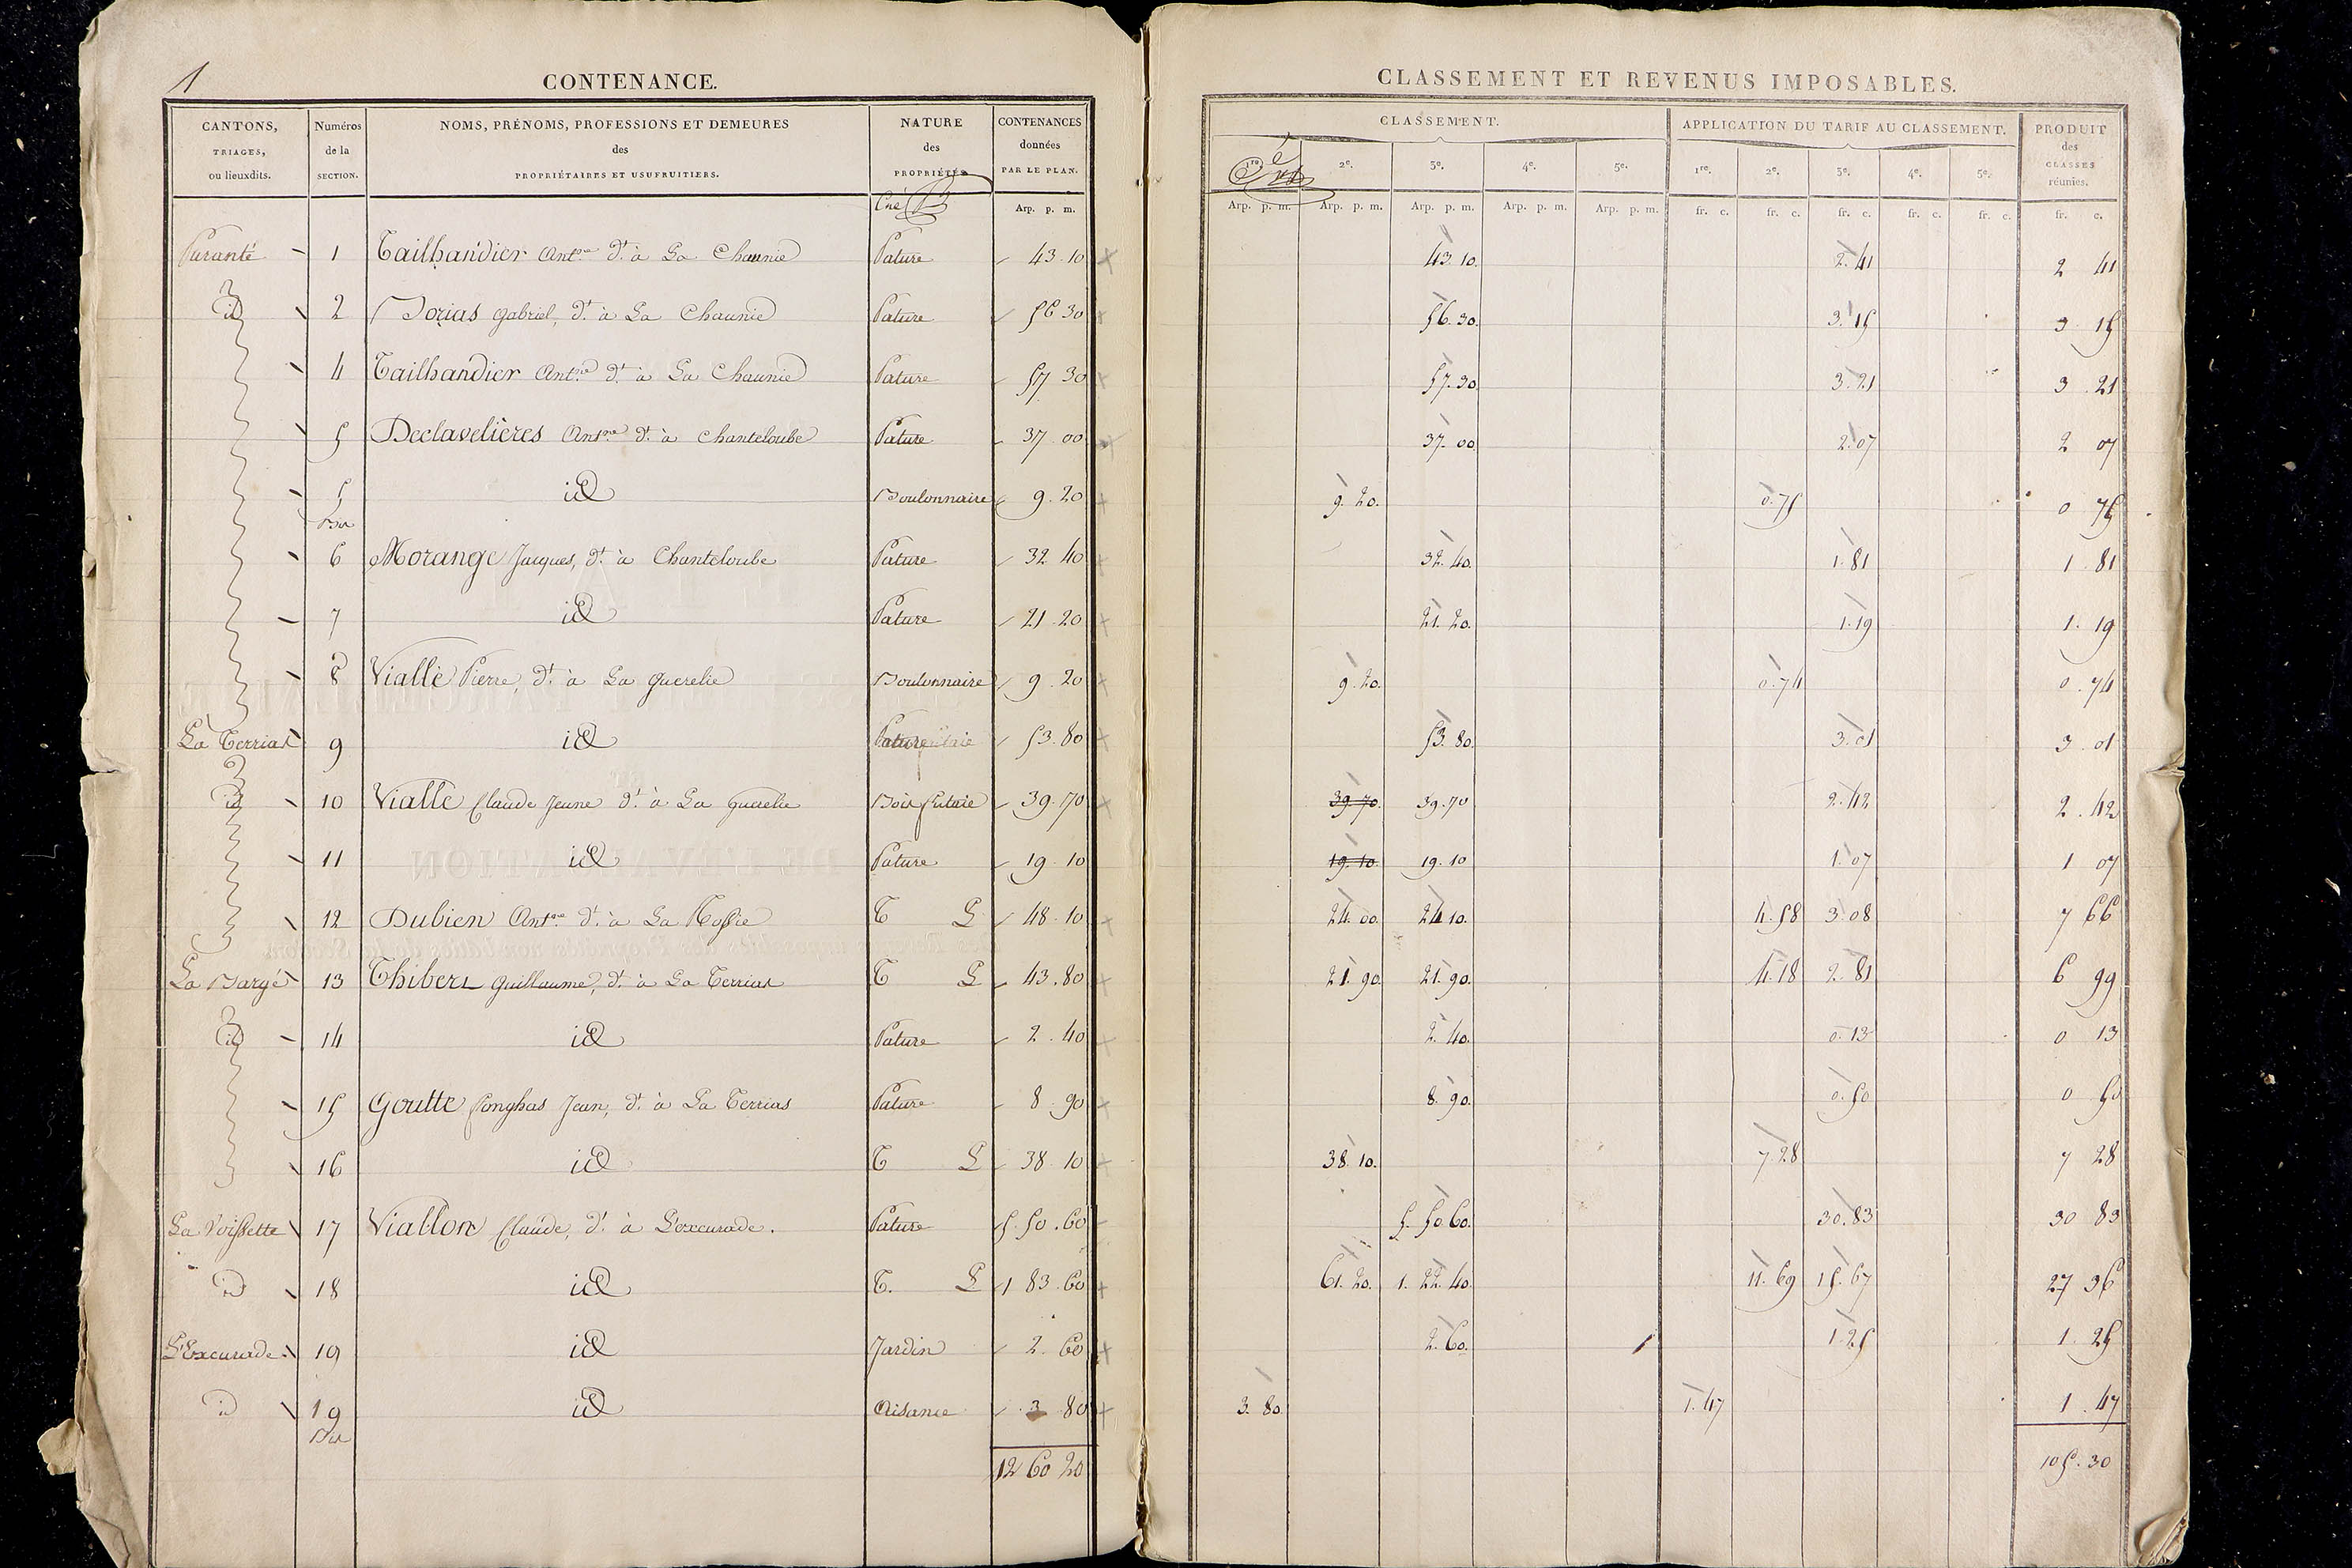 1
CONTENANCE.
CANTONS, TRIAGES, ou lieuxdits. Numéros de la SECTION. NOMS, PRÉNOMS, PROFESSIONS ET DEMEURES des PROPRIÉTAIRES ET USUFRUITIERS. NATURE des PROPRIÉTÉS CONTENANCES données PAR LE PLAN.
Arp. p. m.
Puranté 1 Tailhandier Antne dt à La Chaunie Pature 43.10
id 2 Dorias Gabriel, dt à La Chaunie Pature 56 30
4 Tailhandier Antne dt à La Chaunie Pature 57 30
5 Declavelières Antne dt à Chanteloube Pature 37.00
5 Bis id Boulonnaire 9.20
6 Morange Jacques, dt à Chanteloube Pature 32 40
7 id Pature 21.20
8 Viallé Pierre, dt à La guerelie Boulonnaire 9.20
La Terrias 9 id Pature 53.80
id 10 Viallé Claude Jeune dt à La guerelie Bois futaie 39.70
11 id Pature 19.10
12 Dubien Antne dt à La T L 48.10
La Bargé 13 Thibert Guillaume, dt à La Terrias T L 43.80
id 14 id Pature 2.40
15 Goutte fonghas Jean, dt à La Terrias Pature 8.90
16 id T L 38.10
La Voissette 17 Viallon Claude, dt à L'excurade. Pature 5.50.60
id 18 id T. L 1 83.60
L'Excurade 19 id Jardin 2.60
id 19 Bis id Aisance 3 80
12 60 20
CLASSEMENT ET REVENUS IMPOSABLES.
CLASSEMENT. APPLICATION DU TARIF AU CLASSEMENT. PRODUIT des CLASSES réunies.
1re 2e. 3e. 4e. 5e. 1re. 2e. 3e. 4e. 5e.
Arp. p. m. Arp. p. m. Arp. p. m. Arp. p. m. Arp. p. m. fr. c. fr. c. fr. c. fr. c. fr. c. fr. c.
43.10. 2.41 2 41
56.30. 3.15 3.15
57.30 3.21 3.21
37.00 2.07 2 07
9.20. 0.75 0 75
32.40. 1.81 1.81
21.20. 1.19 1.19
9.20. 0.74 0.74
53.80. 3.01 3.01
39.70. 39.70 2.42 2.42
19.10. 19.10 1.07 1 07
24.00. 24 10. 4.58 3.08 7 66
21.90. 21.90. 4.18 2.81 6 99
2.40. 0.13 0 13
8.90. 0.50 0 50
38.10. 7.28 7 28
5.50.60. 30.83 30 83
61.20. 1.22.40. 11.69 15.67 27 36
2.60. 1.25 1.25
3.80. 1.47 1.47
105.30